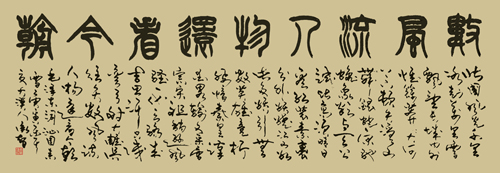 數風流人物還看今朝
北國風光千里
冰封萬里雪
飄望長城內外
惟餘莽莽大河
上下頓失滔滔
山舞銀蛇原馳
蠟象欲與天公
試比高須晴日
看紅裝素裹
分外妖嬈江山如
此多嬌引無數
英雄競折
腰惜秦皇漢
武略輸文采唐
宗宋祖稍遜風
騷一代天驕成
吉思汗只識
彎弓射大雕俱
往矣數風流
人物還看今朝
毛澤東詞沁園春
雪